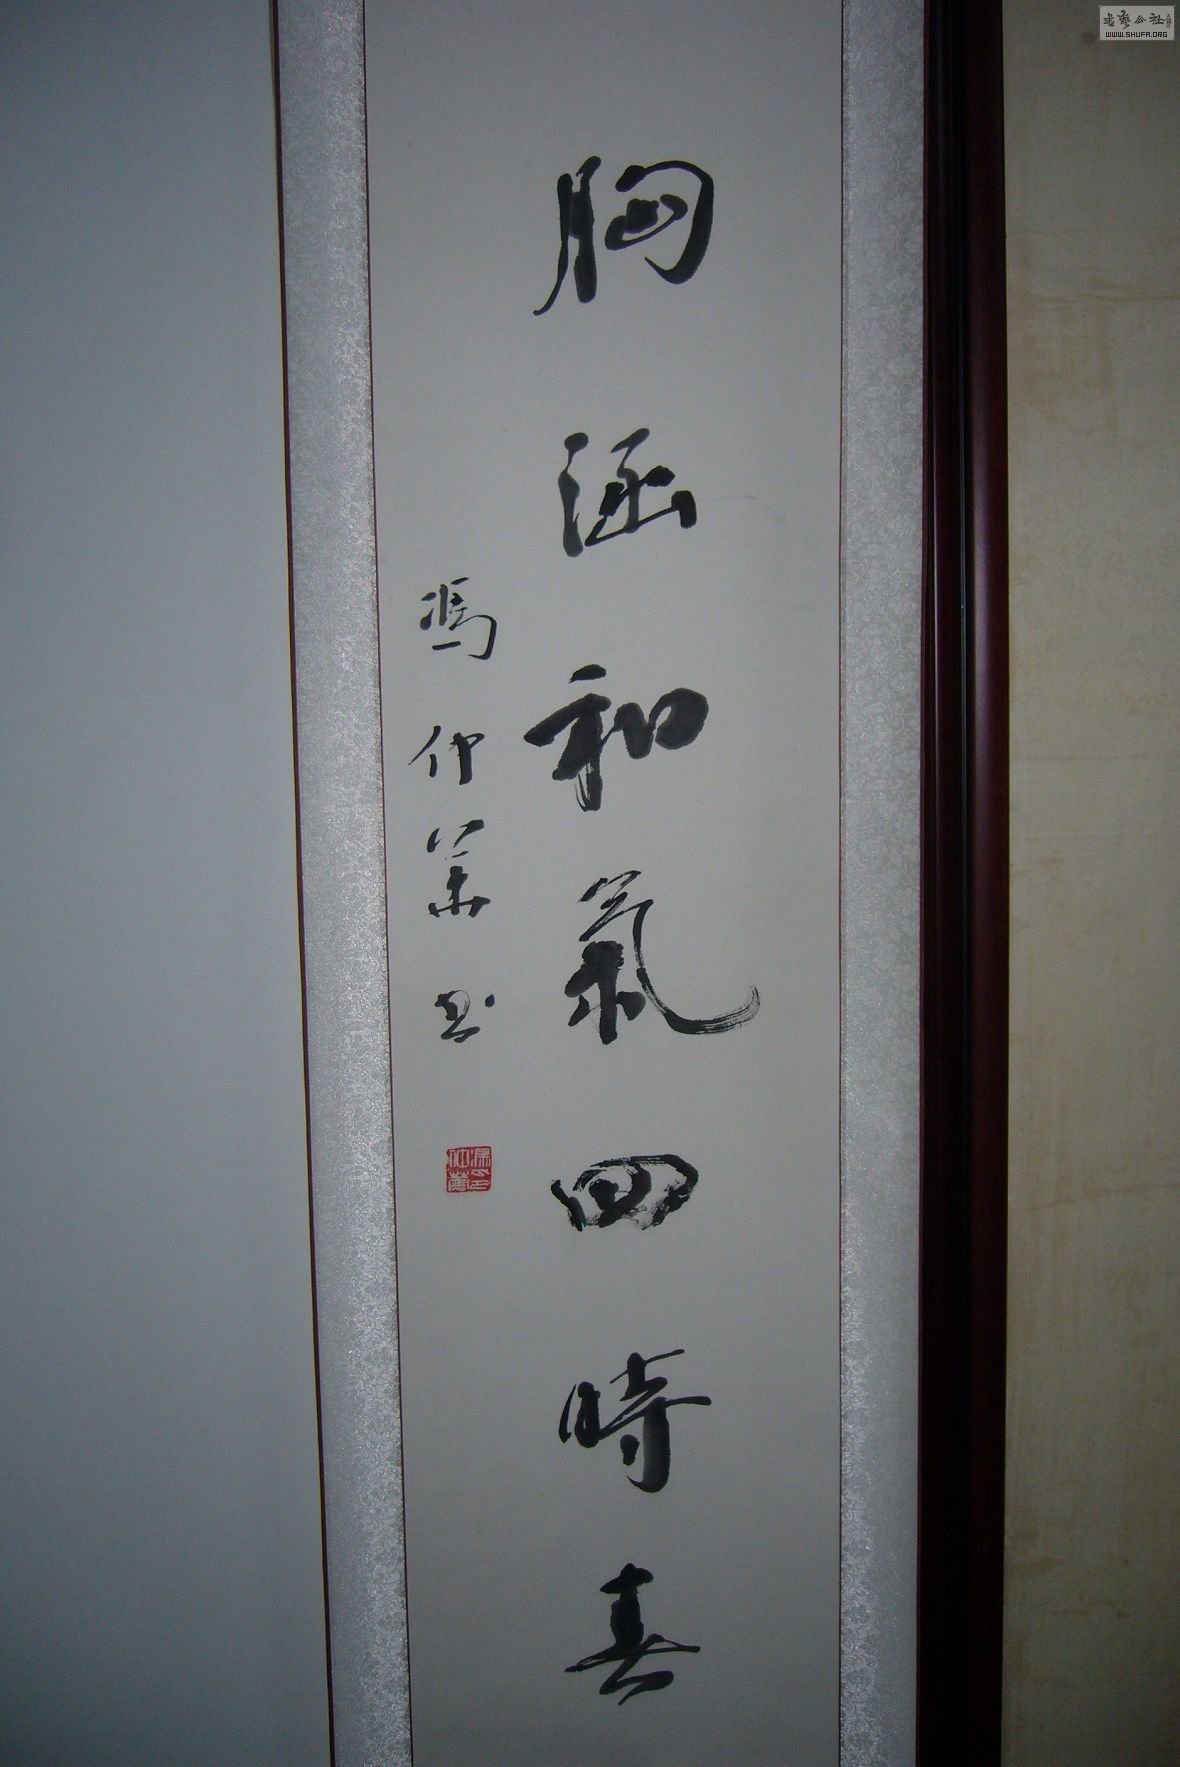 胸涵和氣四時春
馮仲華书
WWW.SHUFA.ORG